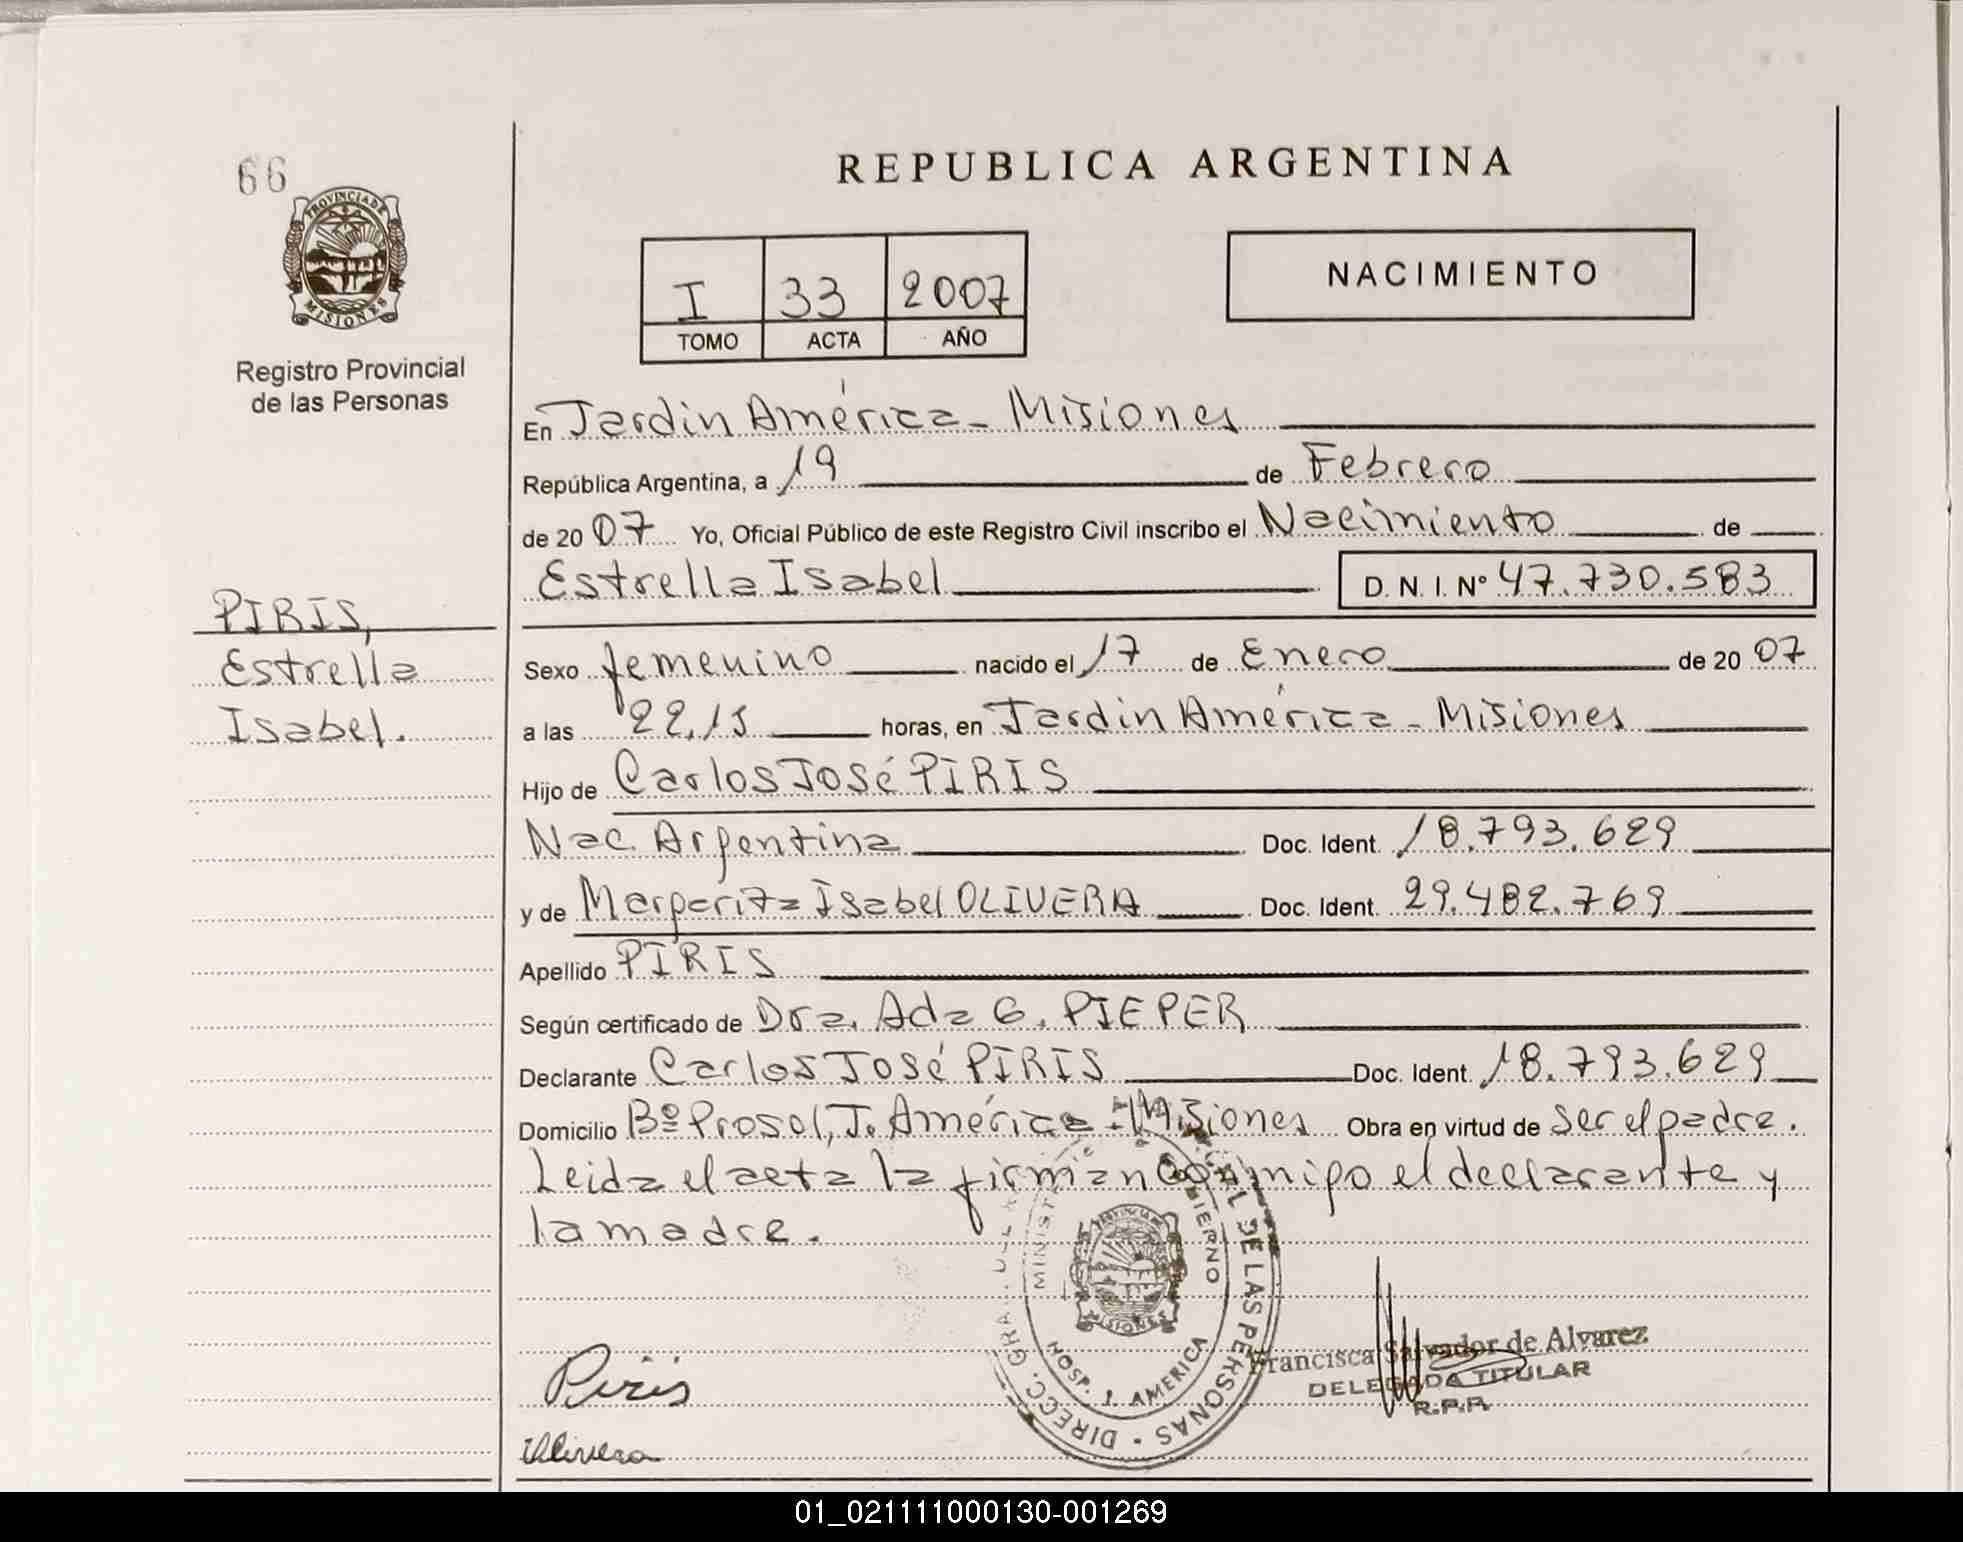 66
PROVINCIA DE
MISIONES
Registro Provincial
de las Personas
PIRIS,
Estrella
Isabel.
REPUBLICA ARGENTINA
I 33 2007
TOMO ACTA AÑO
NACIMIENTO
En Jardín América - Misiones
República Argentina, a 19 de Febrero
de 2007 Yo, Oficial Público de este Registro Civil inscribo el Nacimiento de
Estrella Isabel D. N. I. Nº 47.730.583
Sexo femenino nacido el 17 de Enero de 2007
a las 22,15 horas, en Jardín América - Misiones
Hijo de Carlos José PIRIS
Nac. Argentina Doc. Ident. 18.793.629
y de Margarita Isabel OLIVERA Doc. Ident. 29.482.769
Apellido PIRIS
Según certificado de Dra. Ada G. PIEPER
Declarante Carlos José PIRIS Doc. Ident. 18.793.629
Domicilio Bº Prosol, J. América - Misiones Obra en virtud de ser el padre.
Leida el acta la firman conmigo el declarante y
la madre.
DIRECC. GRAL. DE LAS PERSONAS
HOSP. J. AMERICA
MISIONES
Francisca Salvador de Alvarez
DELEGADA TITULAR
R.P.P.
Piris
Olivera
01_021111000130-001269